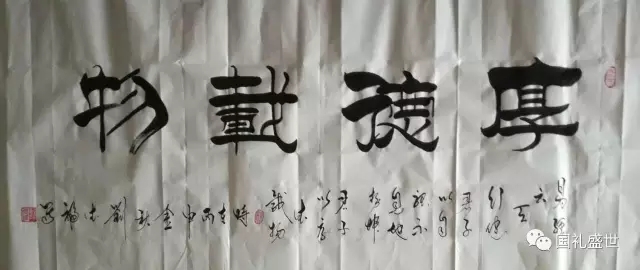 厚德載物
易經
云天
行健
君子
以自
强不
息地
势坤
君子
以厚
德
載物
時在丙申金秋劉
国礼盛世